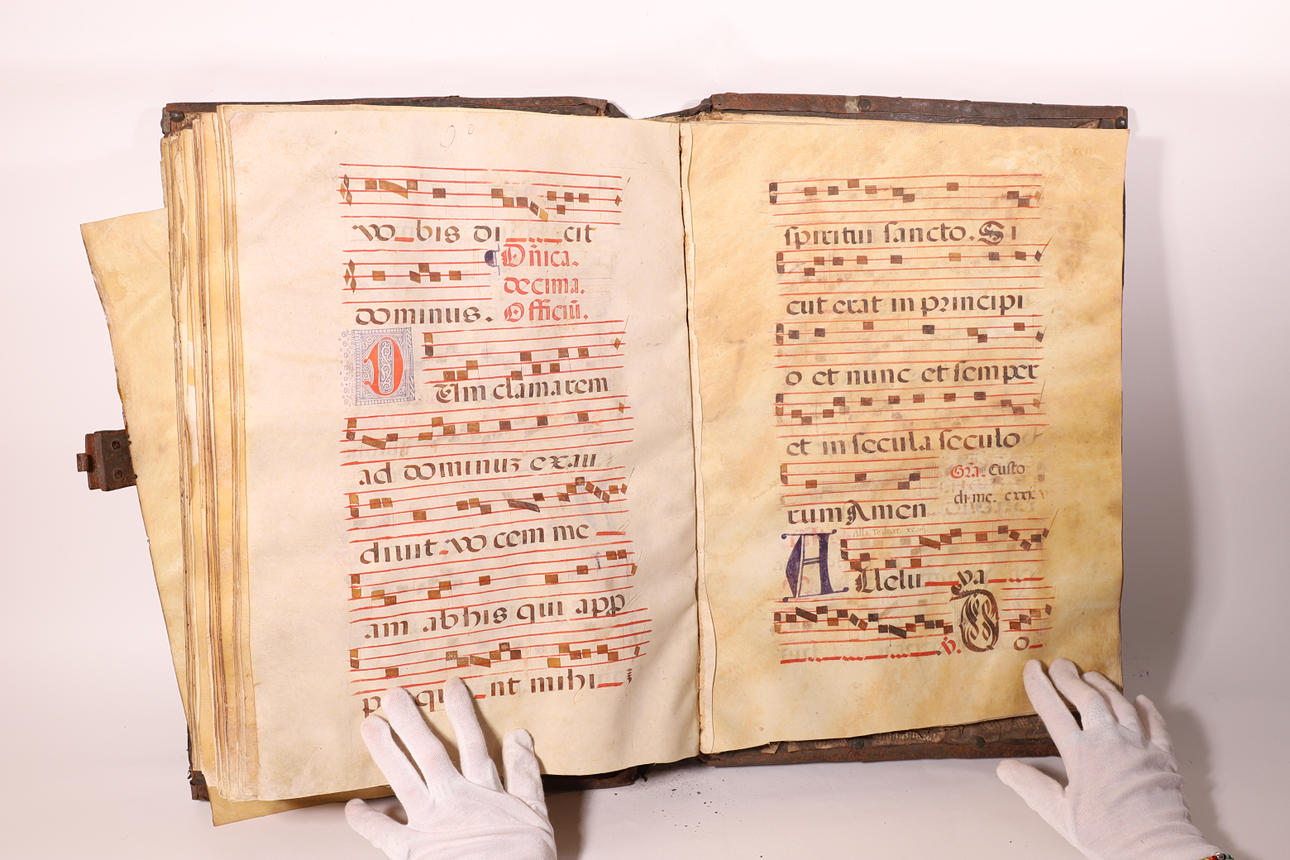 vo bis di cit
Dñica.
decima.
dominus. Officiũ.
Dum clamarem
ad dominuz exau
diuit vo cem me
am ab his qui app
nt mihi
spiritui sancto. Si
cut erat in principi
o et nunc et semper
et in secula seculo
Gra. Custo
di me.
rum Amen
Allelu ya
v. O